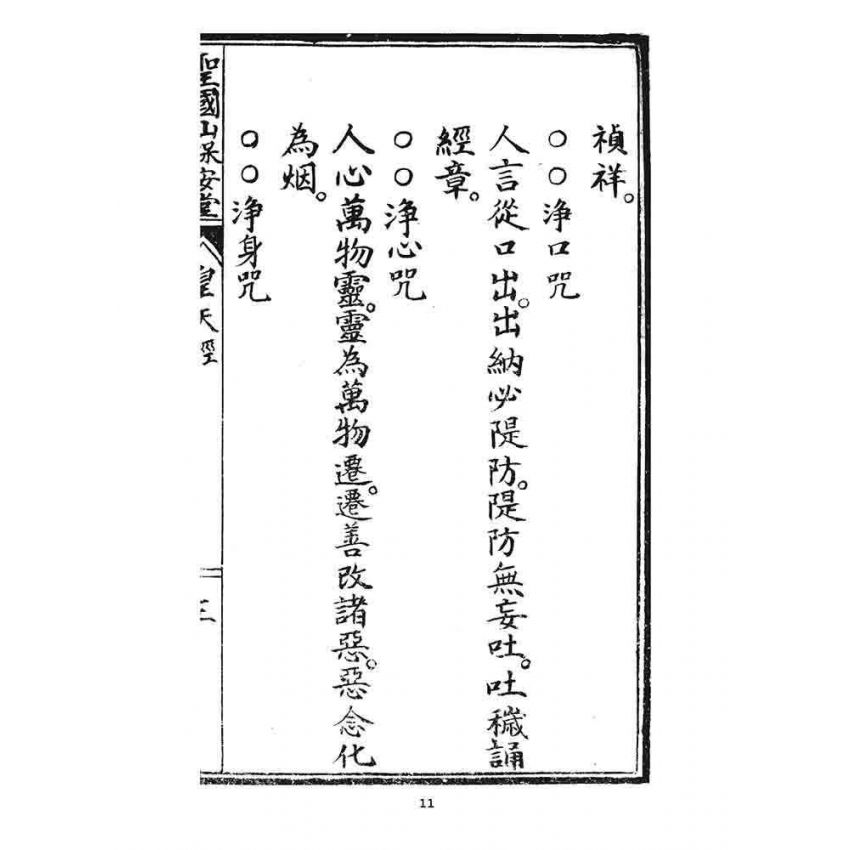 禎祥。
○○淨口咒
人言從口出。出納必隄防。隄防無妄吐。吐穢誦
經章。
○○淨心咒
人心萬物靈。靈為萬物遷。遷善改諸惡。惡念化
為烟。
○○淨身咒
聖國山保安堂 皇天經 三
11